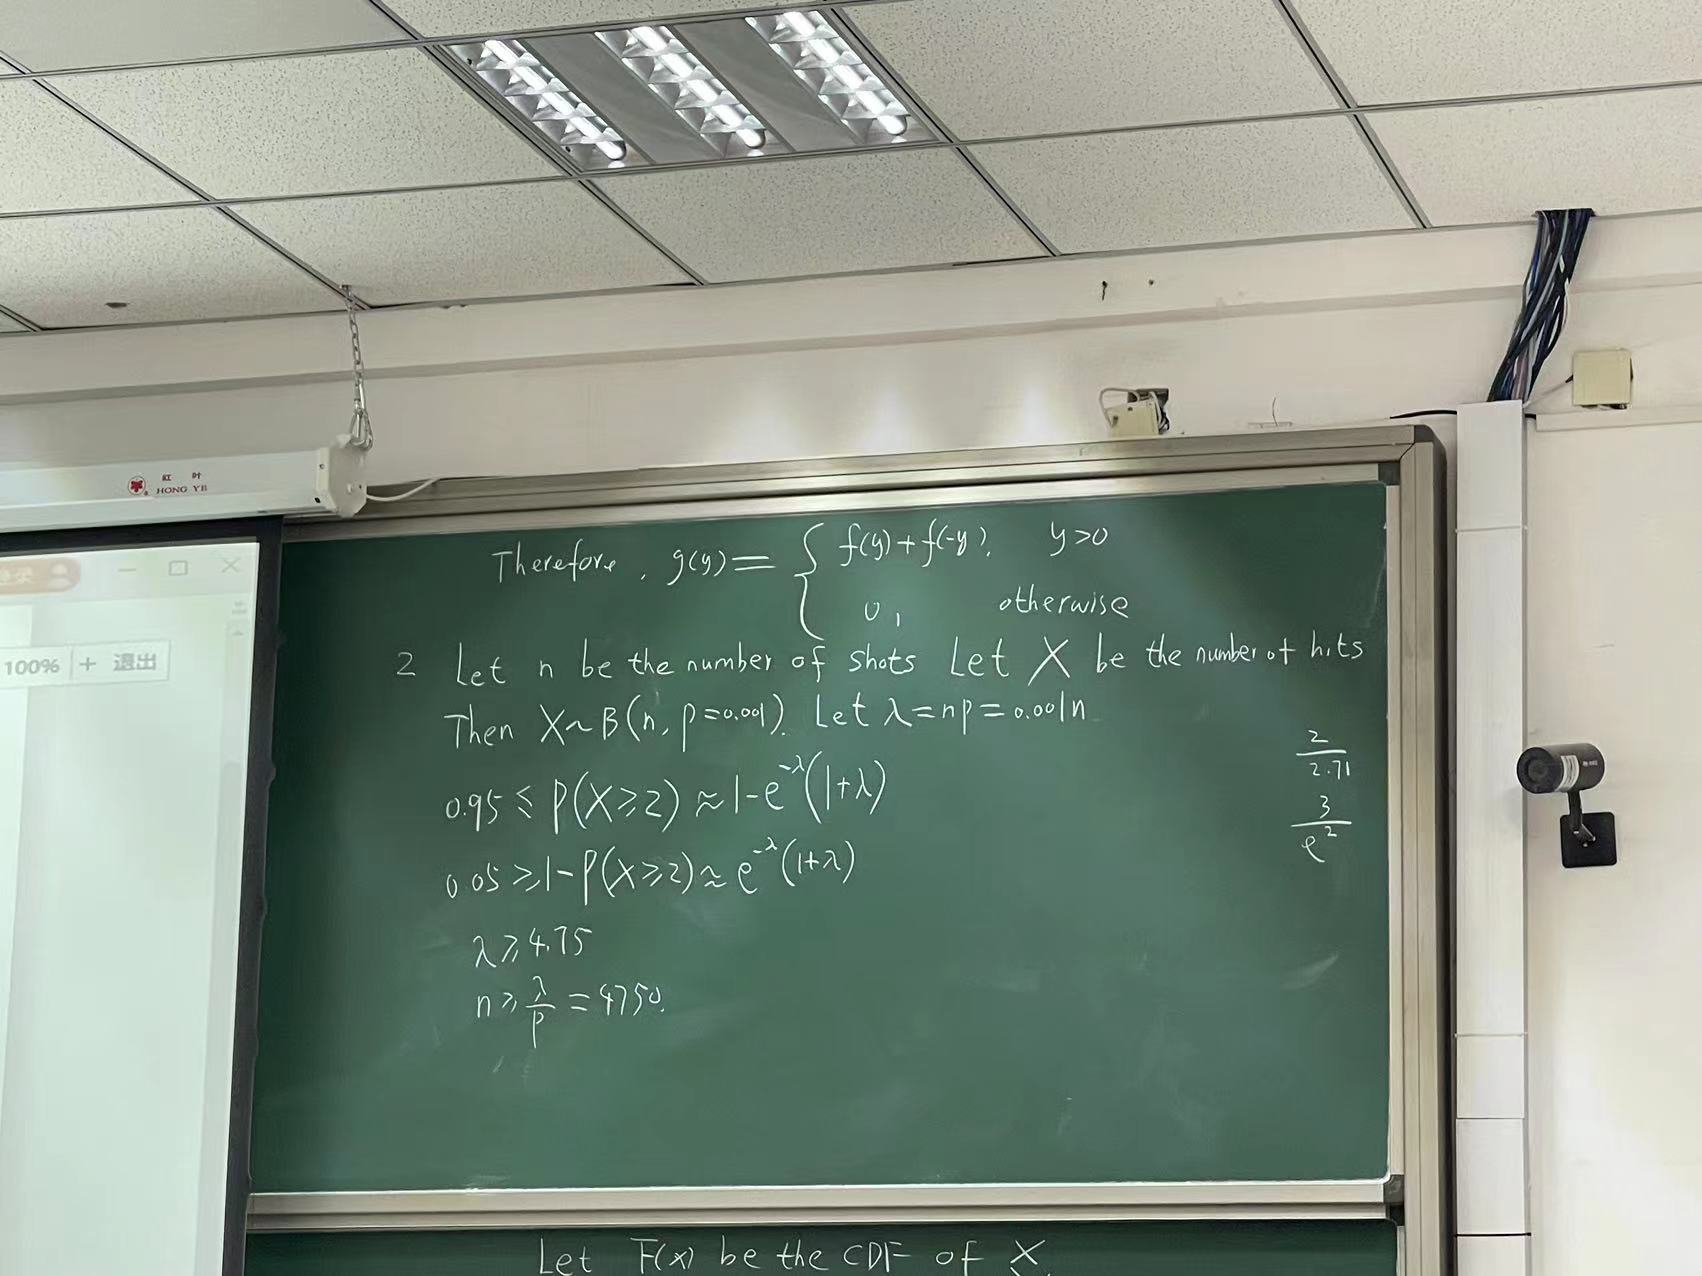 紅 叶
HONG YE
100% + 退出
Therefore, g(y) = { f(y)+f(-y), y>0
0, otherwise
2 Let n be the number of shots Let X be the number of hits
Then X~B(n, p=0.001). Let λ=np=0.001n
0.95 ≤ P(X≥2) ≈ 1-e^{-λ}(1+λ)
0.05 ≥ 1-P(X≥2) ≈ e^{-λ}(1+λ)
λ ≥ 4.75
n ≥ λ/p = 4750.
2/2.71
3/e^2
Let F(x) be the CDF of X.